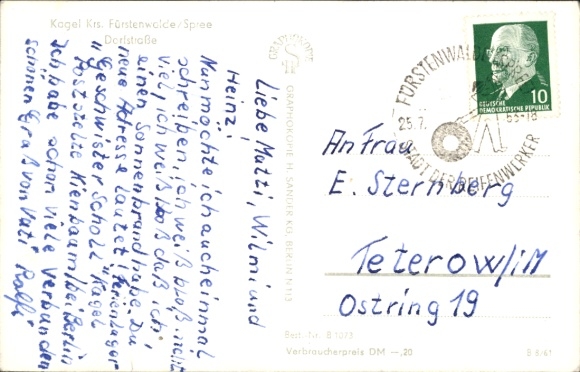 Kagel Krs. Fürstenwalde/Spree
Dorfstraße
Liebe Mutti, Wilmi und
Heinz!
Nun möchte ich auch einmal
schreiben, ich weiß bloß nicht
viel, ich weiß bloß daß ich
einen Sonnenbrand habe. Die
neue Adresse lautet Ferienlager
"Geschwister Scholl" Kagel
Postst. Kienbaum / bei Berlin
Ich habe schon viele Verbunden
schönen Gruß von Vati Ralf!
GRAPHOKOPIE
GRAPHOKOPIE H. SANDER KG, BERLIN N 113
FÜRSTENWALDE
25.7.
-18
STADT DER REIFENWERKER
DEUTSCHE
DEMOKRATISCHE REPUBLIK
10
An Frau
E. Sternberg
Teterow/i M
Ostring 19
Best.-Nr. B 1073
Verbraucherpreis DM —,20
B 8/61